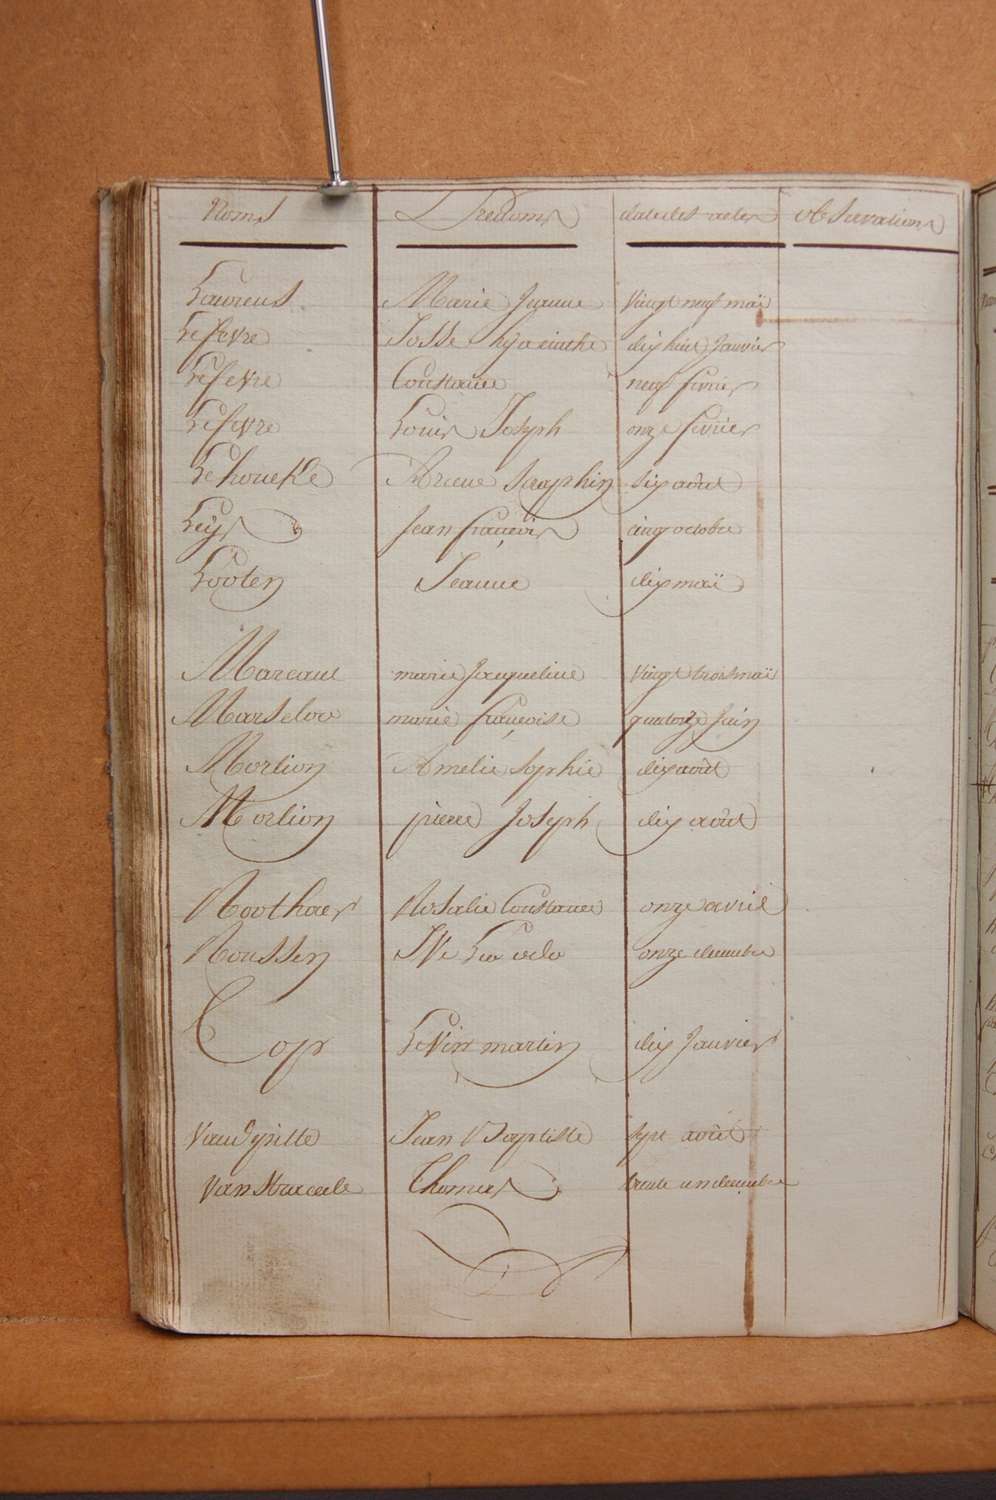 Noms Prenoms date des actes observations
Laurens Marie Jeanne vingt neuf maï
Lefevre Josse hyacinthe dix huit Janvier
Lefevre Constance neuf fevrier
Lefevre Louis Joseph onze fevrier
Lehoucke Seraphin dix août
Leÿs Jean françois cinq octobre
Looten Jeanne dix maï
Mareaux marie Jacqueline vingt trois maï
Marseloo marie françoise quatorze Juin
Morlion Amelie Sophie dix août
Morlion pierre Joseph dix août
Roothaer Rosalie Constance onze avril
Roussen onze decembre
Cop Levin martin dix Janvier
Jean Baptiste sept août
Van Straceele Thomas trente un decembre